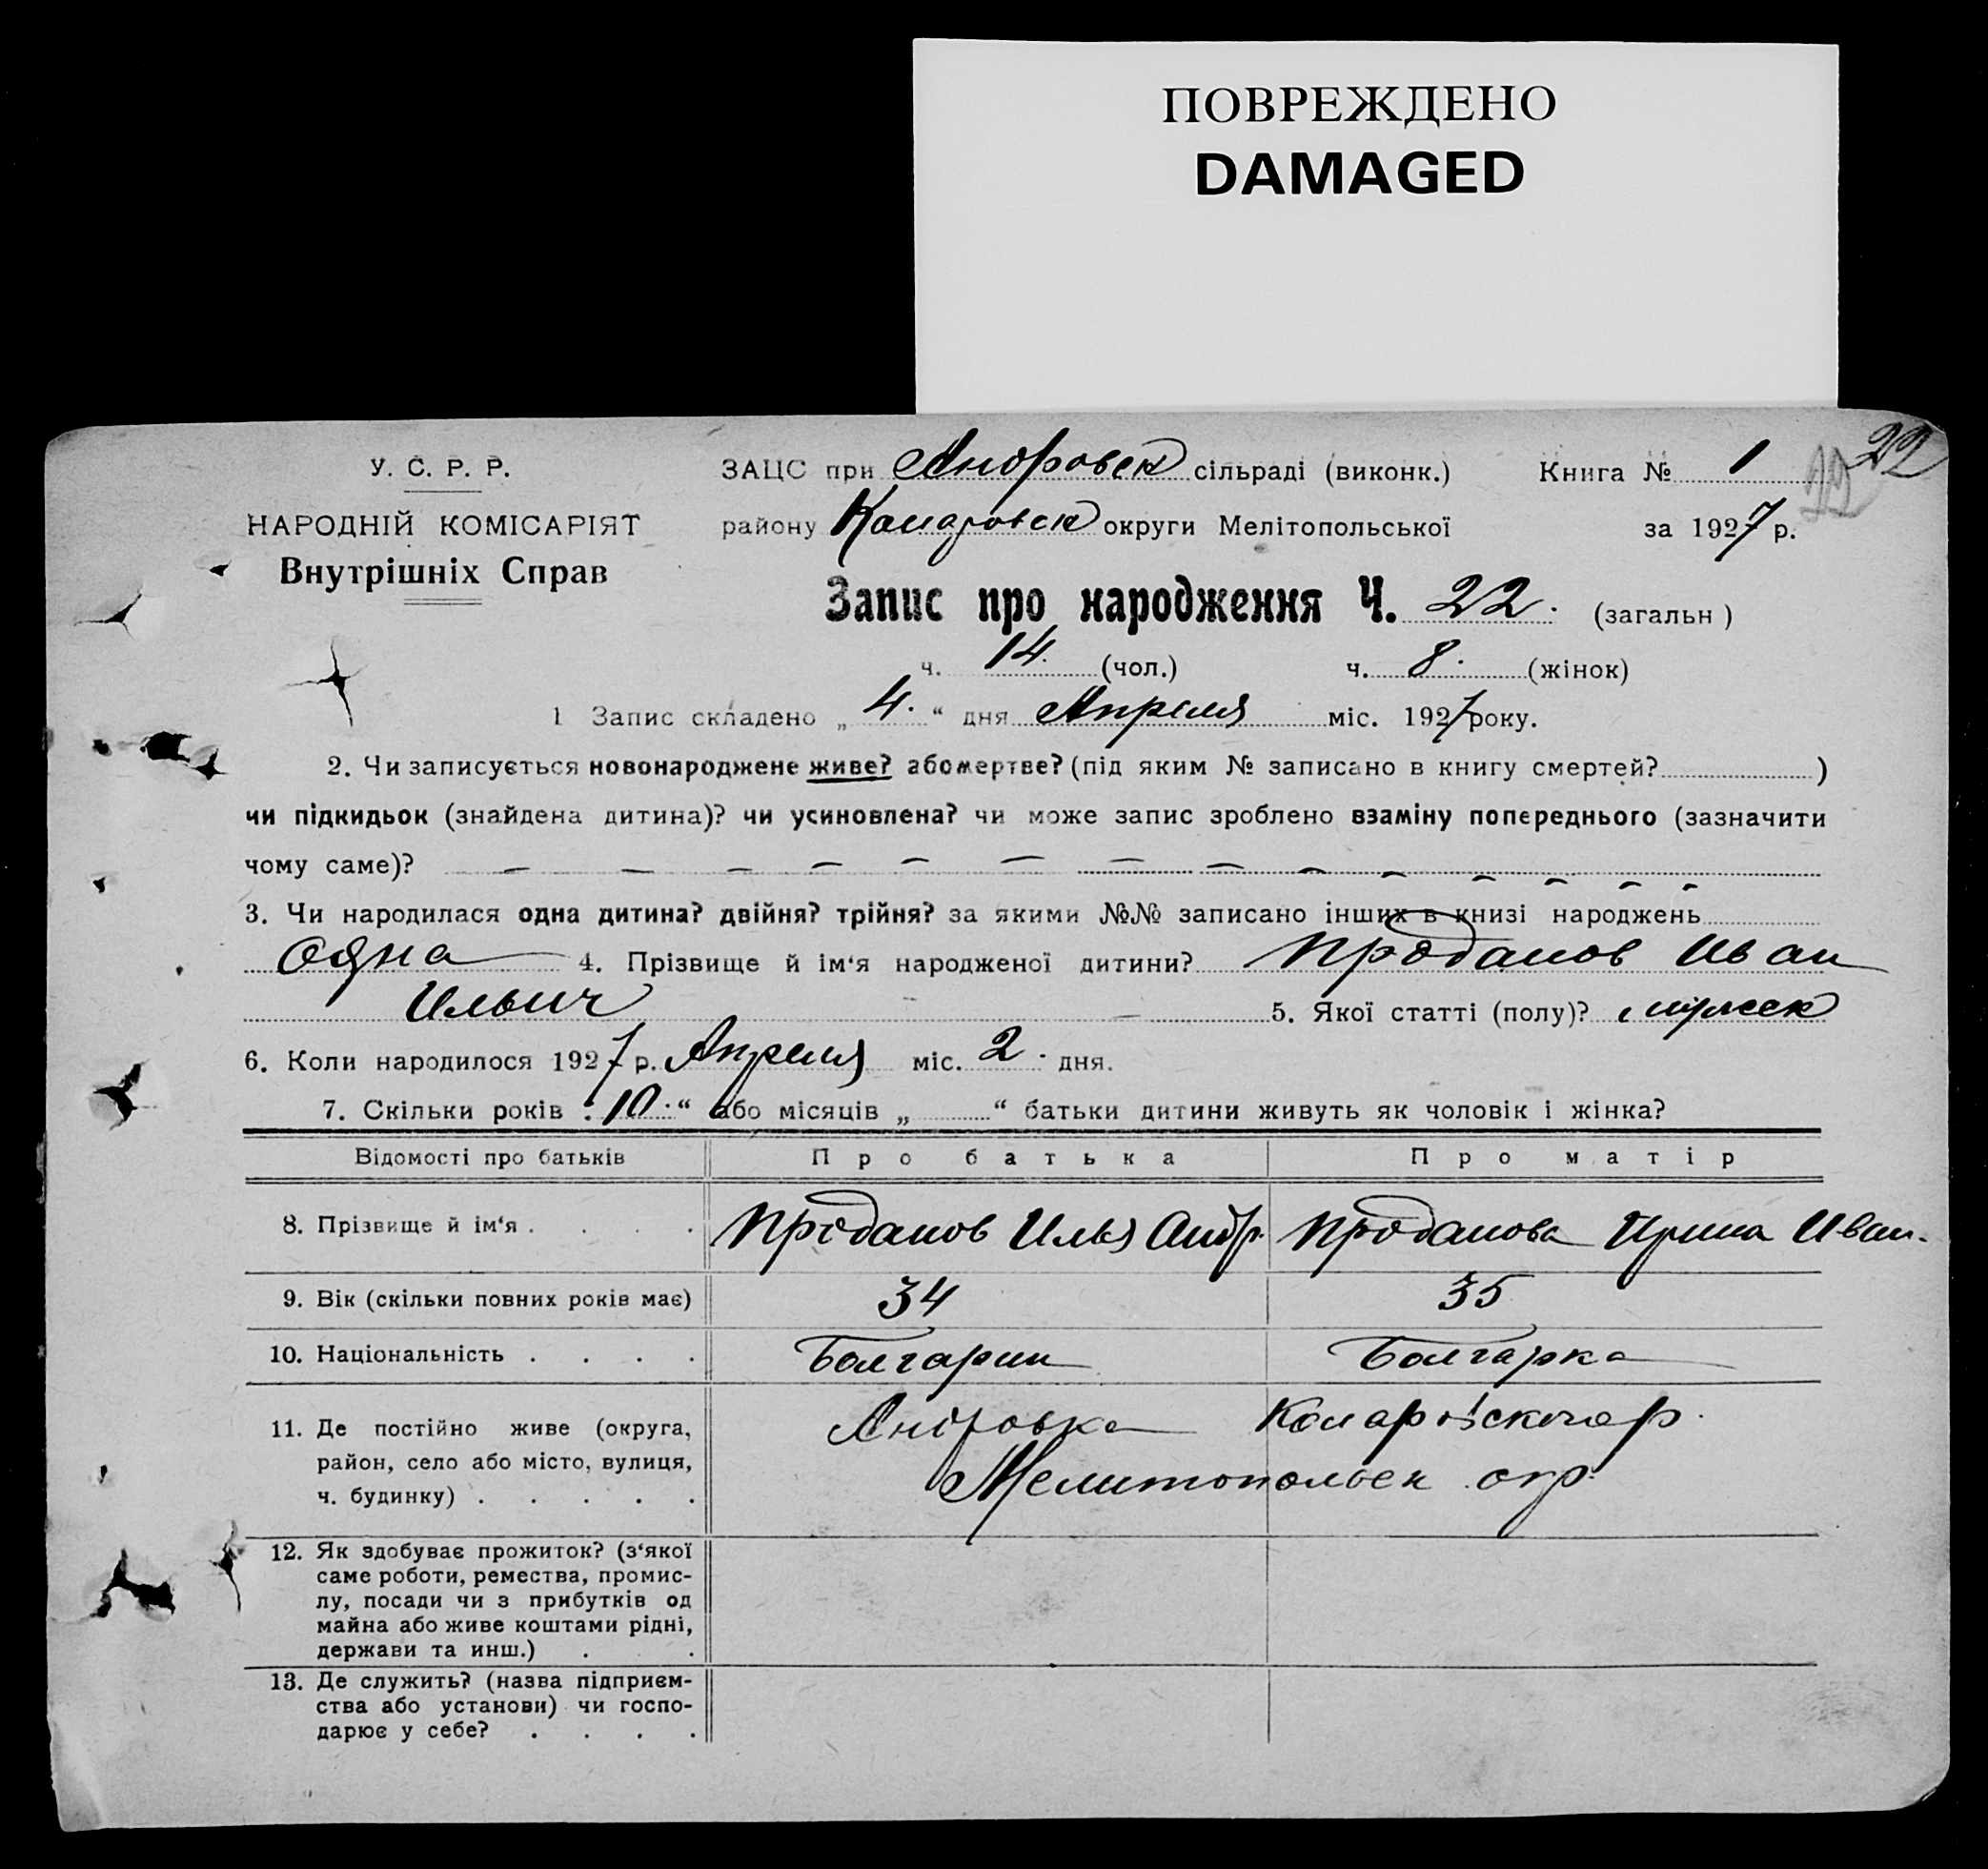 ПОВРЕЖДЕНО
DAMAGED
У. С. Р. Р.
НАРОДНІЙ КОМІСАРІЯТ
Внутрішніх Справ
22
22
ЗАЦС при Андровск сільраді (виконк.) Книга № 1
району Комаровск округи Мелітопольської за 1927 р.
Запис про народження Ч. 22. (загальн )
ч. 14. (чол.) ч. 8. (жінок)
1 Запис складено „ 4. “ дня Апреля міс. 1927 року.
2. Чи записується новонароджене живе? або мертве? (під яким № записано в книгу смертей? )
чи підкидьок (знайдена дитина)? чи усиновлена? чи може запис зроблено взаміну попереднього (зазначити
чому саме)? — — — — — — — — — — — — — —
3. Чи народилася одна дитина? двійня? трійня? за якими №№ записано інших в книзі народжень
одна 4. Прізвище й ім‘я народженої дитини? Проданов Иван
Ильич 5. Якої статті (полу)? мужск
6. Коли народилося 1927 р. Апреля міс. 2. дня.
7. Скільки років „10.“ або місяців „ “ батьки дитини живуть як чоловік і жінка?
Відомості про батьків Про батька Про матір
8. Прізвище й ім‘я . . . . Проданов Илья Андр. Проданова Ирина Иван.
9. Вік (скільки повних років має) 34 35
10. Національність . . . . Болгарин Болгарка
11. Де постійно живе (округа, Андровка Комаровского р.
район, село або місто, вулиця, Мелитопольск окр.
ч. будинку) . . . . .
12. Як здобуває прожиток? (з‘якої
саме роботи, ремества, промис-
лу, посади чи з прибутків од
майна або живе коштами рідні,
держави та инш.) . . .
13. Де служить? (назва підприєм-
ства або установи) чи госпо-
дарює у себе? . . . .